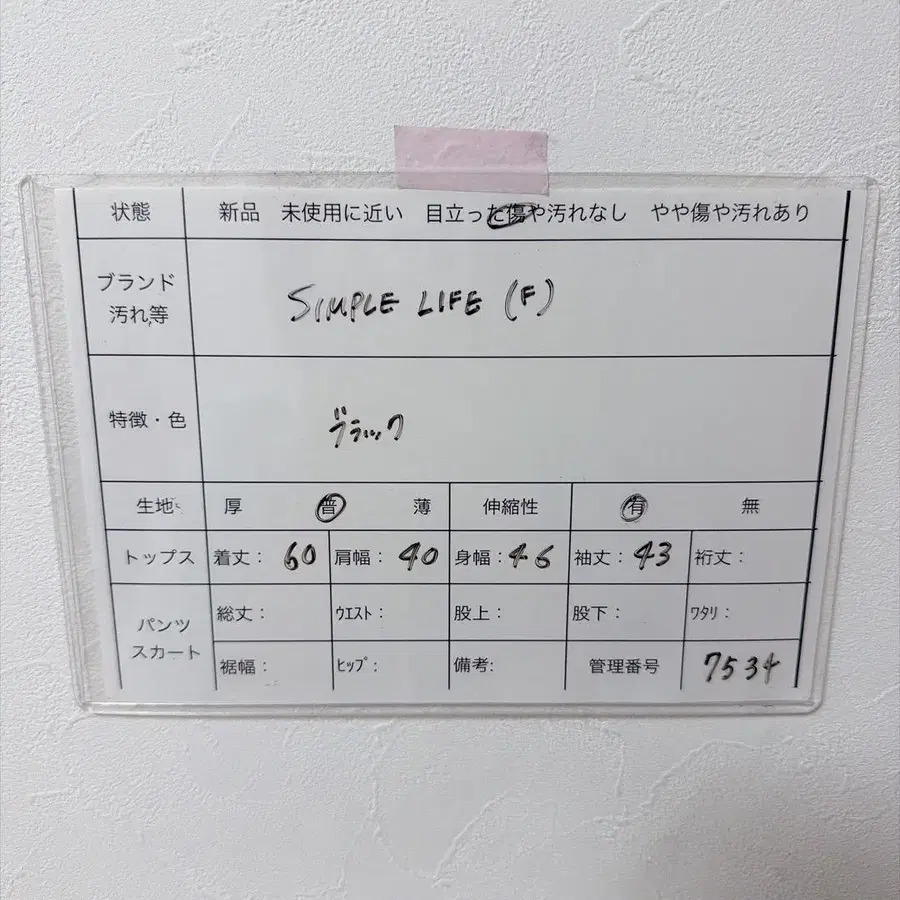 状態 新品 未使用に近い 目立った傷や汚れなし やや傷や汚れあり
ブランド
汚れ等
SIMPLE LIFE (F)
特徴・色 ブラック
生地 厚 普 薄 伸縮性 有 無
トップス 着丈: 60 肩幅: 40 身幅: 46 袖丈: 43 裄丈:
パンツ
スカート
総丈: ウエスト: 股上: 股下: ワタリ:
裾幅: ヒップ: 備考: 管理番号 7534